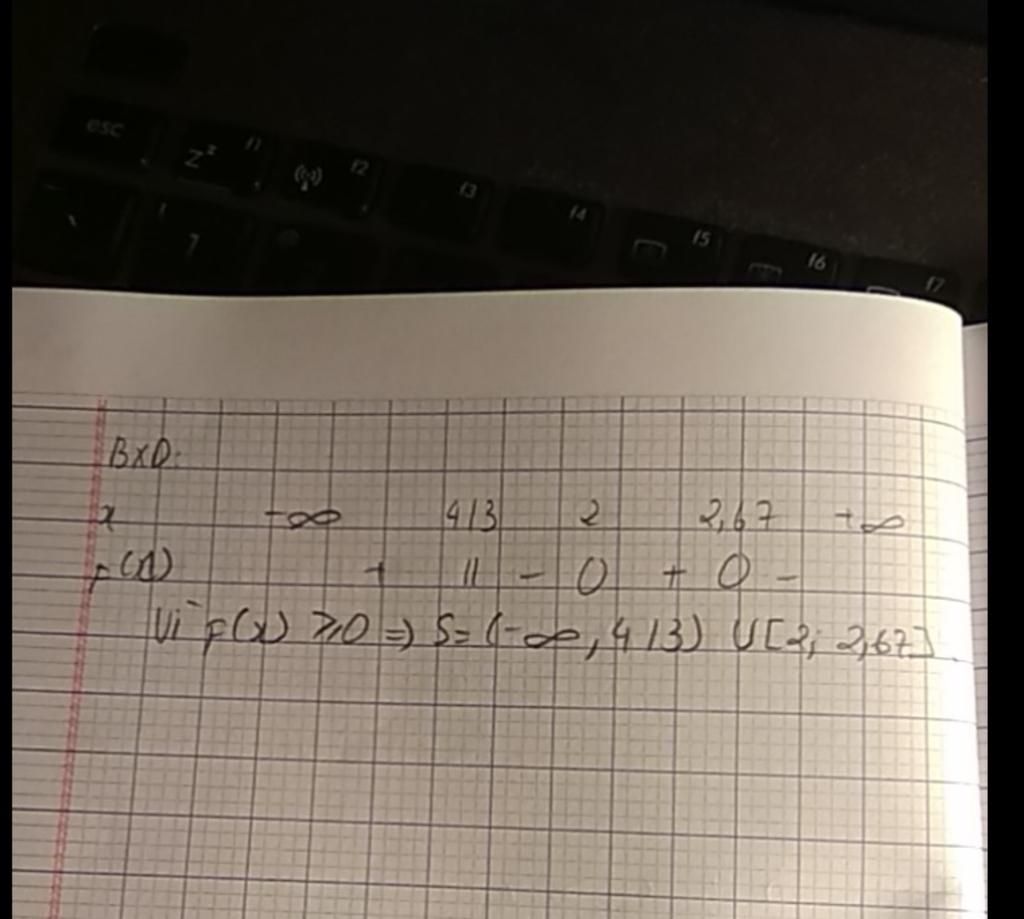 esc
z z f1
f2
f3
f4
f5
f6
f7
!
1
BXD:
x -∞ 4/3 2 2,67 +∞
F(x) + || - 0 + 0 -
Vì F(x) ≥0 => S= (-∞, 4/3) U [2; 2,67]